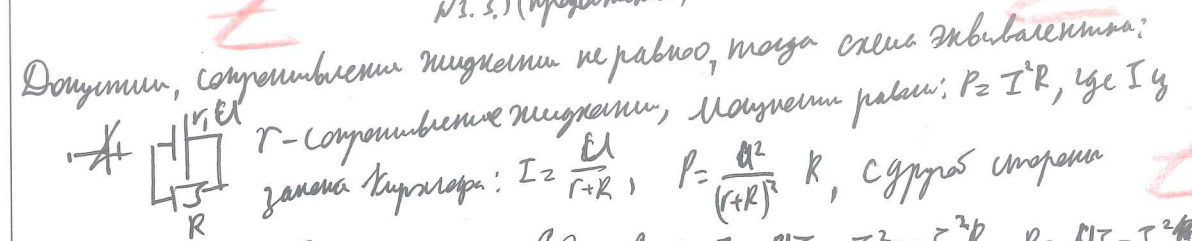 N3.3.) (продолжение)
Допустим, сопротивление жидкости не равно, тогда схема эквивалентна:
r, U
r - сопротивление жидкости, мощности равны: P = I²R, где I из
закона Кирхгофа: I = U/(r+R), P = U²/(r+R)² R, с другой стороны
R